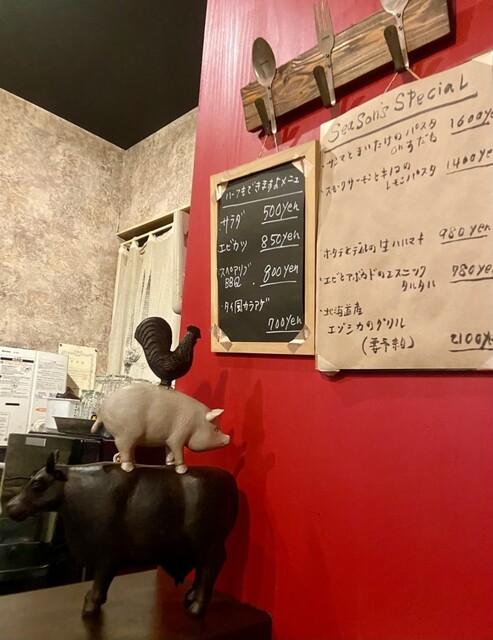 ハーフもできますよメニュー
・サラダ 500yen
エビカツ 850yen
スペアリブ
BBQ. 800yen
・タイ風カラアゲ
700yen
Season's Special
・サンマとまいたけのパスタ
onすだち 1600ye
・スモークサーモンときのこの
レモンパスタ 1400ye
・ホタテとディルの生ハルマキ 980yen
・エビとアボカドのエスニック
タルタル 780yen
・北海道産
エゾシカのグリル
(要予約) 2100y